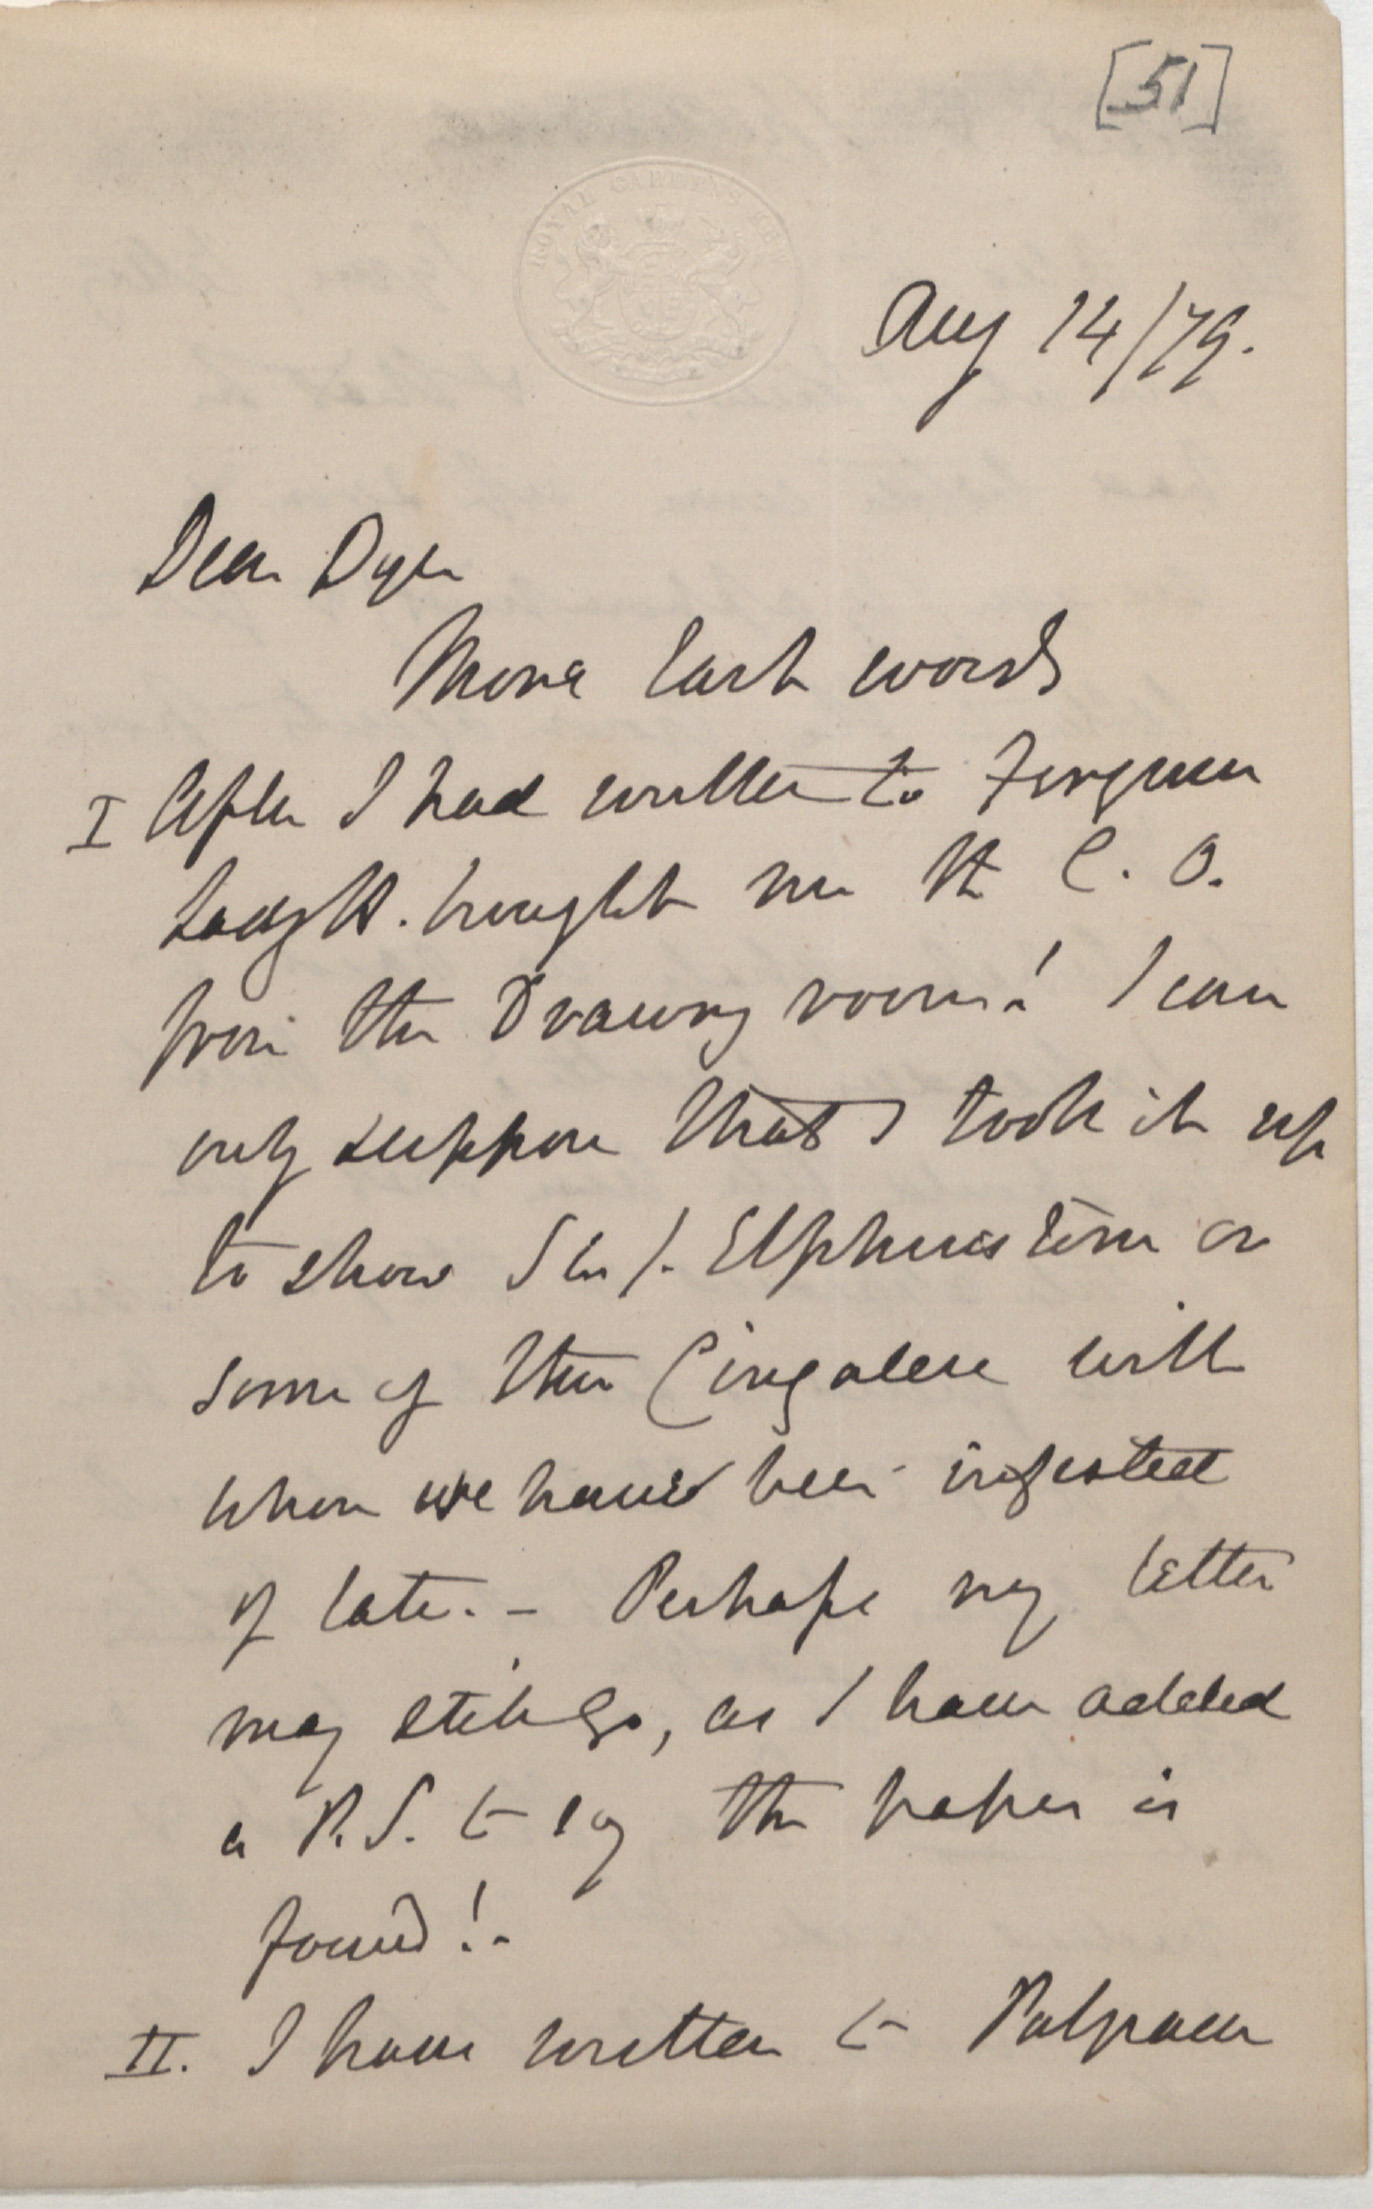 [51]
ROYAL GARDENS KEW
Aug 14/79.
Dear Dyer
More last words
I After I had written to Ferguson
Lady H. brought me the C. O.
from the Drawing room! I can
only suppose that I took it up
to show Sir J. Elphinstone or
some of the Cingalese with
whom we have been infested
of late. - Perhaps my letter
may still go, as I have added
a P.S. to say the paper is
found! -
II. I have written to Palgrave